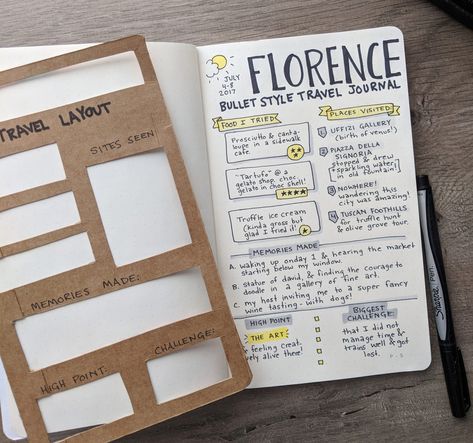 TRAVEL LAYOUT
SITES SEEN
MEMORIES MADE:
HIGH POINT:
CHALLENGE:
JULY
4-8
2017
FLORENCE
BULLET STYLE TRAVEL JOURNAL
FOOD I TRIED
Prosciutto & canta-
loupe in a sidewalk
cafe.
"Tartufo" @ a
gelato shop. choc.
gelato in choc shell!
Truffle ice cream
(kinda gross but
glad I tried it!)
PLACES VISITED
1 UFFIZI GALLERY
(birth of venus!)
2 PIAZZA DELLA
SIGNORIA
stopped & drew
*sparkling water*
in old fountain!
3 NOWHERE!
wandering this
city was amazing!
4 TUSCAN FOOTHILLS
for truffle hunt
& olive grove tour.
MEMORIES MADE
A. waking up on day 1 & hearing the market
starting below my window.
B. statue of david, & finding the courage to
doodle in a gallery of fine art.
C. my host inviting me to a super fancy
wine tasting - with dogs!
HIGH POINT
THE ART
& feeling creat
vely alive there!
BIGGEST
CHALLENGE:
that I did not
manage time &
trains well & got
lost.
Sharpie Pen